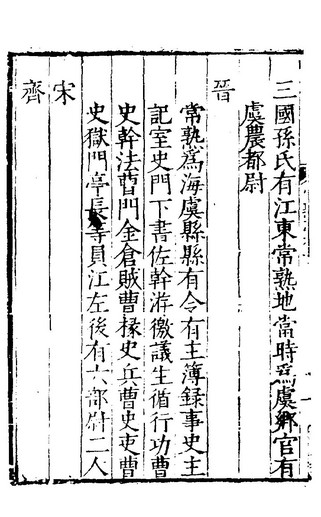 三國孫氏有江東常熟地當時爲虞鄉官有
虞農都尉
晉
常熟爲海虞縣縣有令有主簿録事史主
記室史門下書佐幹游徼議生循行功曹
史幹法曹門金倉賊曹掾史兵曹史吏曹
史獄門亭長等員江左後有六部尉二人
宋
齊